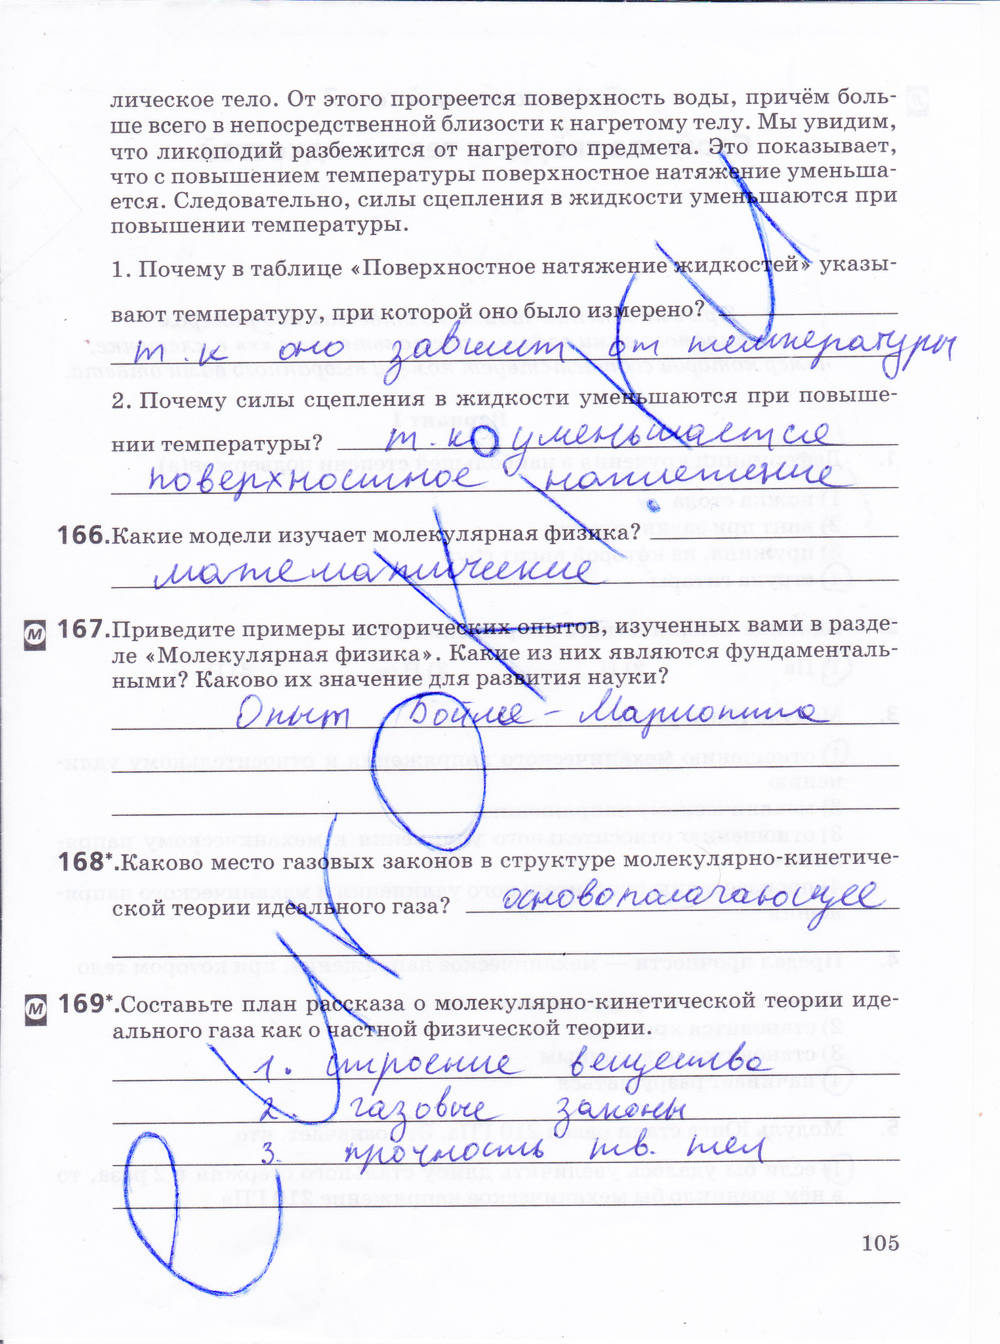 лическое тело. От этого прогреется поверхность воды, причём боль-
ше всего в непосредственной близости к нагретому телу. Мы увидим,
что ликоподий разбежится от нагретого предмета. Это показывает,
что с повышением температуры поверхностное натяжение уменьша-
ется. Следовательно, силы сцепления в жидкости уменьшаются при
повышении температуры.
1. Почему в таблице «Поверхностное натяжение жидкостей» указы-
вают температуру, при которой оно было измерено?
т.к оно зависит от температуры
2. Почему силы сцепления в жидкости уменьшаются при повыше-
нии температуры? т.к уменьшается
поверхностное натяжение
166. Какие модели изучает молекулярная физика?
математические
М 167. Приведите примеры исторических опытов, изученных вами в разде-
ле «Молекулярная физика». Какие из них являются фундаменталь-
ными? Каково их значение для развития науки?
Опыт Бойля - Мариотта
168*. Каково место газовых законов в структуре молекулярно-кинетиче-
ской теории идеального газа? основополагающее
М 169*. Составьте план рассказа о молекулярно-кинетической теории иде-
ального газа как о частной физической теории.
1. строение вещества
2. газовые законы
3. прочность тв. тел
105